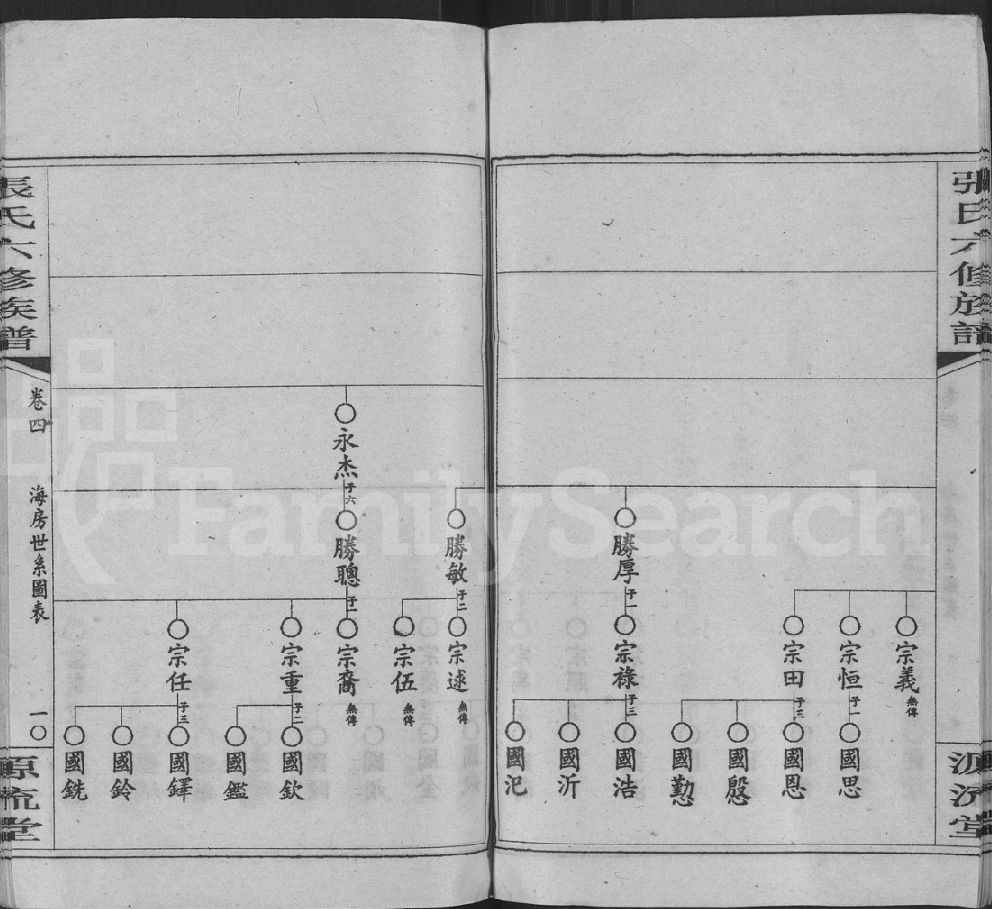 張氏六修族譜
源流堂
宗義 無傳
宗恒 子一
國思
宗田 子三
國恩
國殷
國勤
勝厚 子一
宗祿 子三
國浩
國沂
國汜
勝敏 子二
宗逑 無傳
宗伍 無傳
永杰 子六
勝聰
宗裔 無傳
宗重 子二
國欽
國鑑
宗任 子三
國鐸
國鈴
國銑
張氏六修族譜
卷四
海房世系圖表
一〇
源流堂
FamilySearch